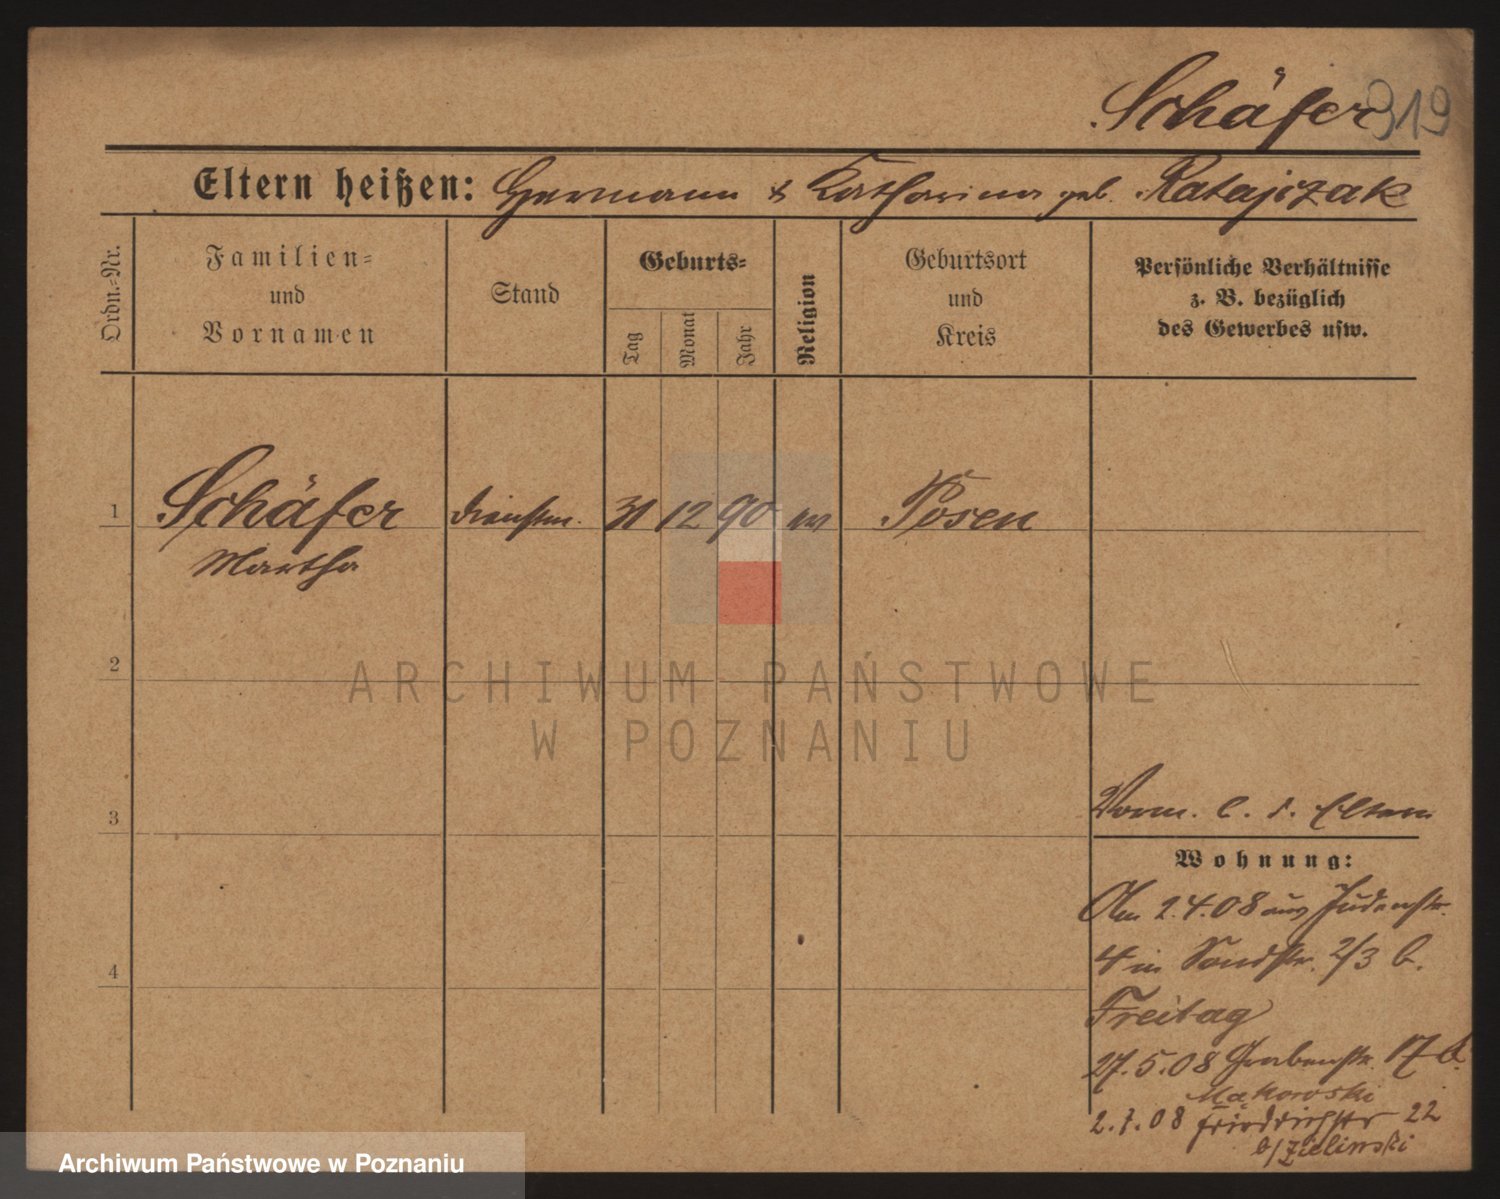 Schäfer 919
Eltern heißen: Hermann & Katharina geb. Ratajczak
Ordn.-Nr.
Familien=
und
Vornamen
Stand
Geburts=
Tag
Monat
Jahr
Religion
Geburtsort
und
Kreis
Persönliche Verhältnisse
z. B. bezüglich
des Gewerbes usw.
1 Schäfer Dienstm. 31 12 90 Posen
Martha
2
ARCHIWUM PAŃSTWOWE
W POZNANIU
3
Vorm. b. d. Eltern
Wohnung:
Am 2.4.08 aus Judenstr.
4 in Sandstr. 2/3 b.
Freitag
4
27.5.08 Grabenstr. 17 b.
Makowski
2.7.08 Friedrichstr 22
b/Zielinski
Archiwum Państwowe w Poznaniu